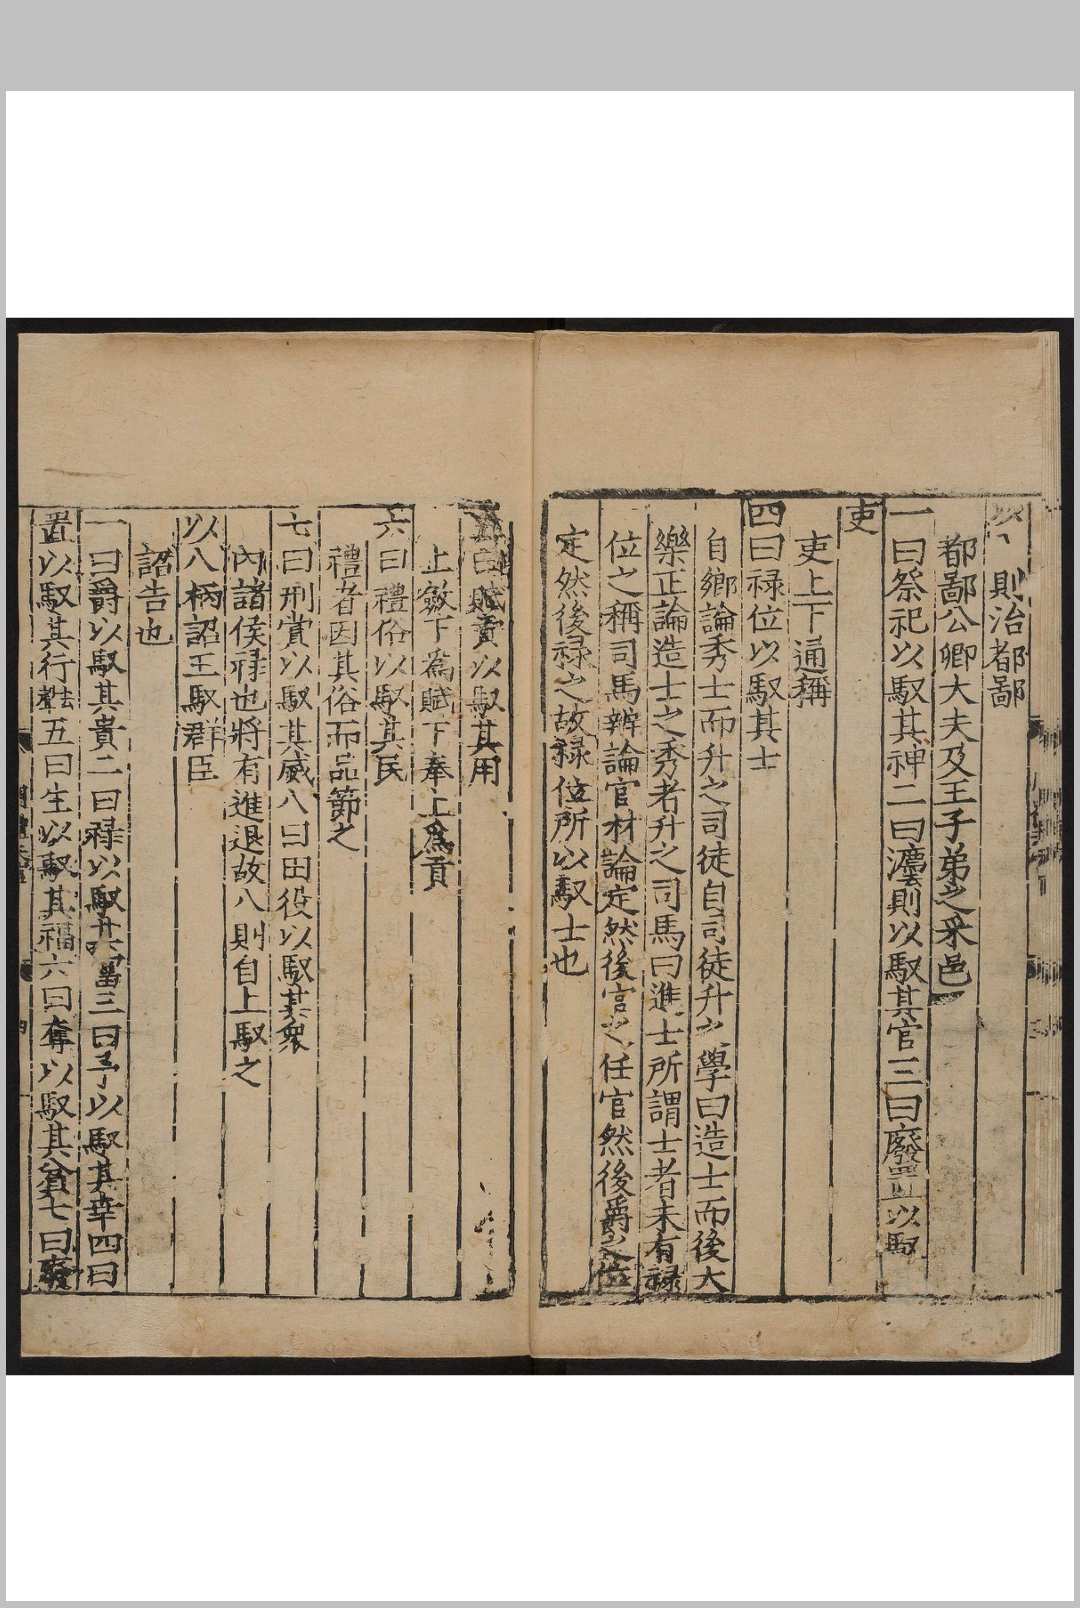 以八則治都鄙
都鄙公卿大夫及王子弟之采邑
一曰祭祀以馭其神二曰灋則以馭其官三曰廢置以馭
吏
吏上下通稱
四曰禄位以馭其士
自鄉論秀士而升之司徒自司徒升之學曰造士而後大
樂正論造士之秀者升之司馬曰進士所謂士者未有禄
位之稱司馬辨論官材論定然後官之任官然後爵之位
定然後禄之故禄位所以馭士也
五曰賦貢以馭其用
上斂下爲賦下奉上爲貢
六曰禮俗以馭其民
禮者因其俗而品節之
七曰刑賞以馭其威八曰田役以馭其衆
內諸侯禄也將有進退故八則自上馭之
以八柄詔王馭群臣
詔告也
一曰爵以馭其貴二曰禄以馭其富三曰予以馭其幸四曰
置以馭其行五曰生以馭其福六曰奪以馭其貧七曰廢